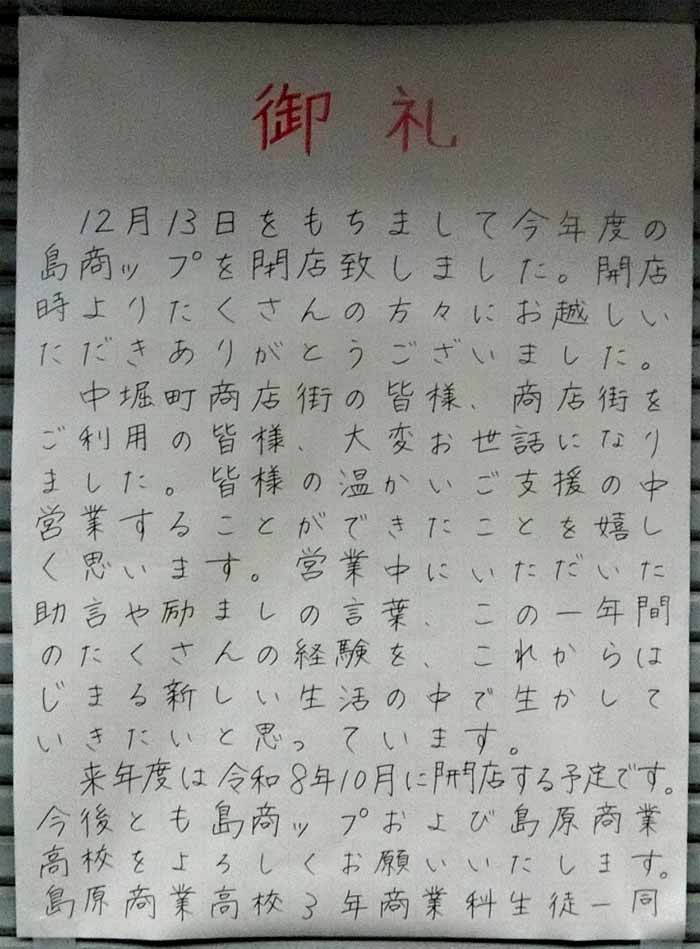 御礼
12月13日をもちまして今年度の
島商ップを閉店致しました。開店
時よりたくさんの方々にお越しい
ただきありがとうございました。
中堀町商店街の皆様、商店街を
ご利用の皆様、大変お世話になり
ました。皆様の温かいご支援の中
営業することができたことを嬉し
く思います。営業中にいただいた
助言や励ましの言葉、この一年間
のたくさんの経験を、これからは
じまる新しい生活の中で生かして
いきたいと思っています。
来年度は令和8年10月に開店する予定です。
今後とも島商ップおよび島原商業
高校をよろしくお願いいたします。
島原商業高校3年商業科生徒一同